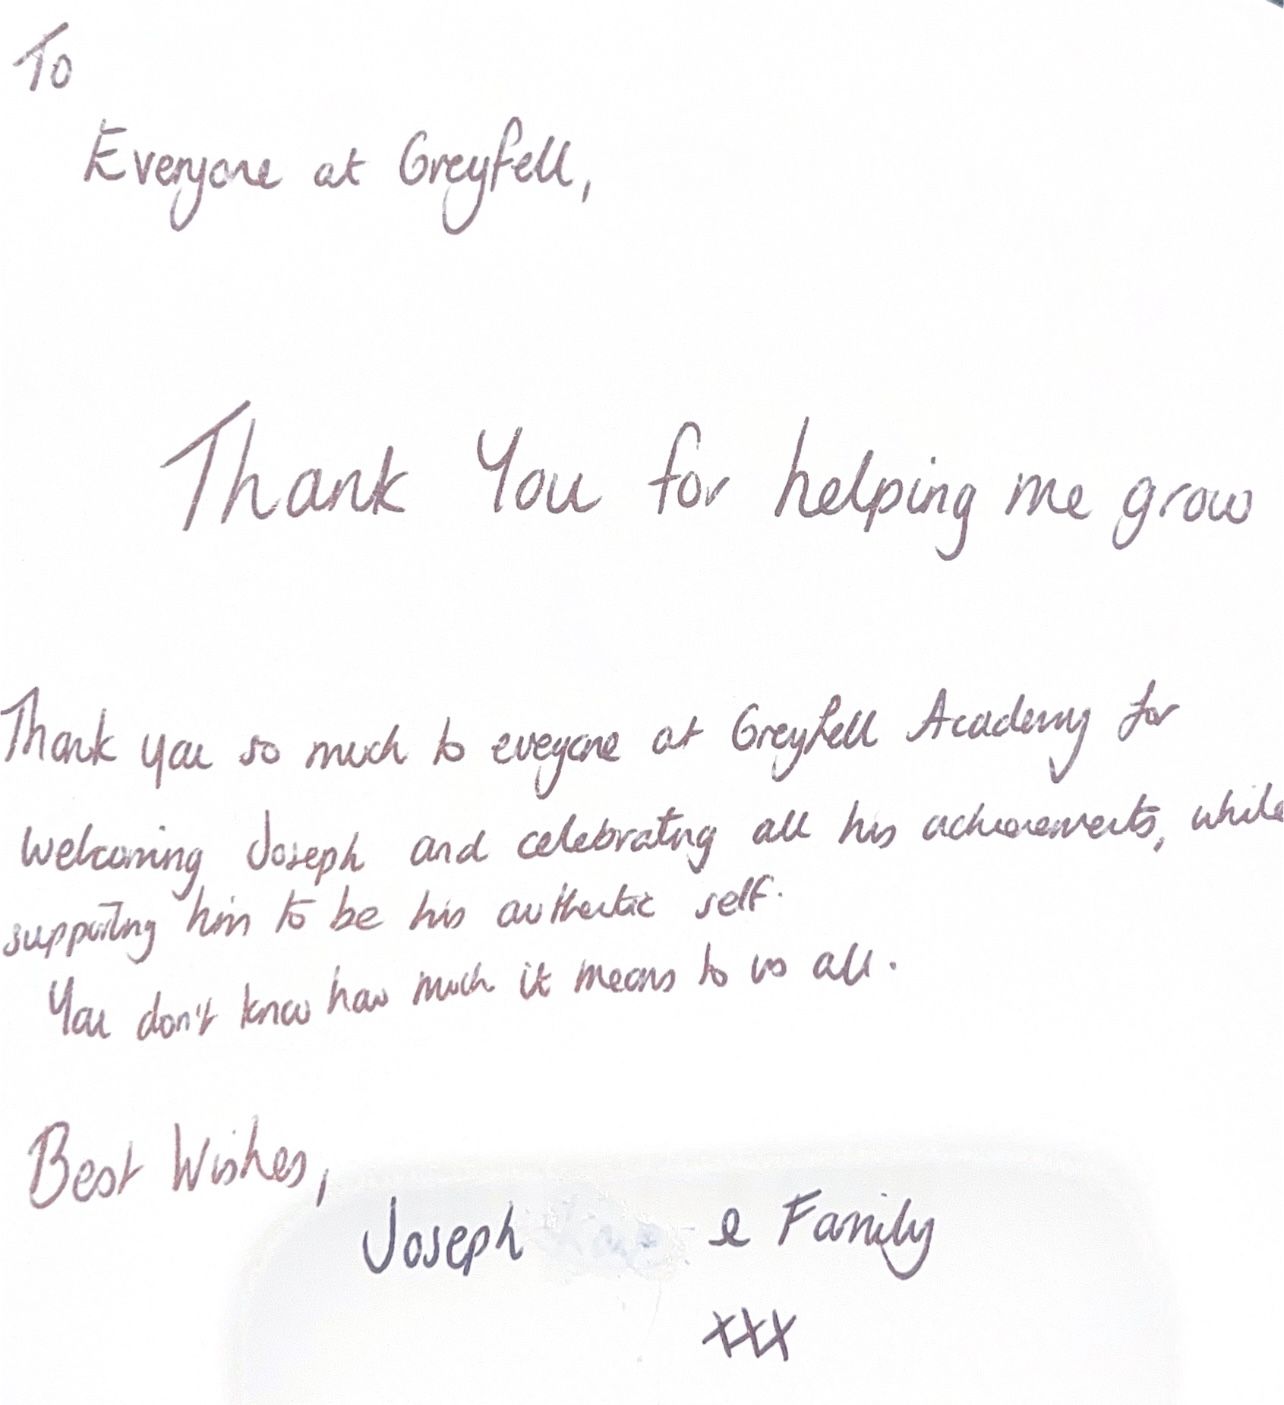 To
Everyone at Greyfell,
Thank You for helping me grow
Thank you so much to eveyone at Greyfell Academy for
welcoming Joseph and celebrating all his achievements, while
supporting him to be his authentic self.
You don't know how much it means to us all.
Best Wishes,
Joseph & Family
xxx